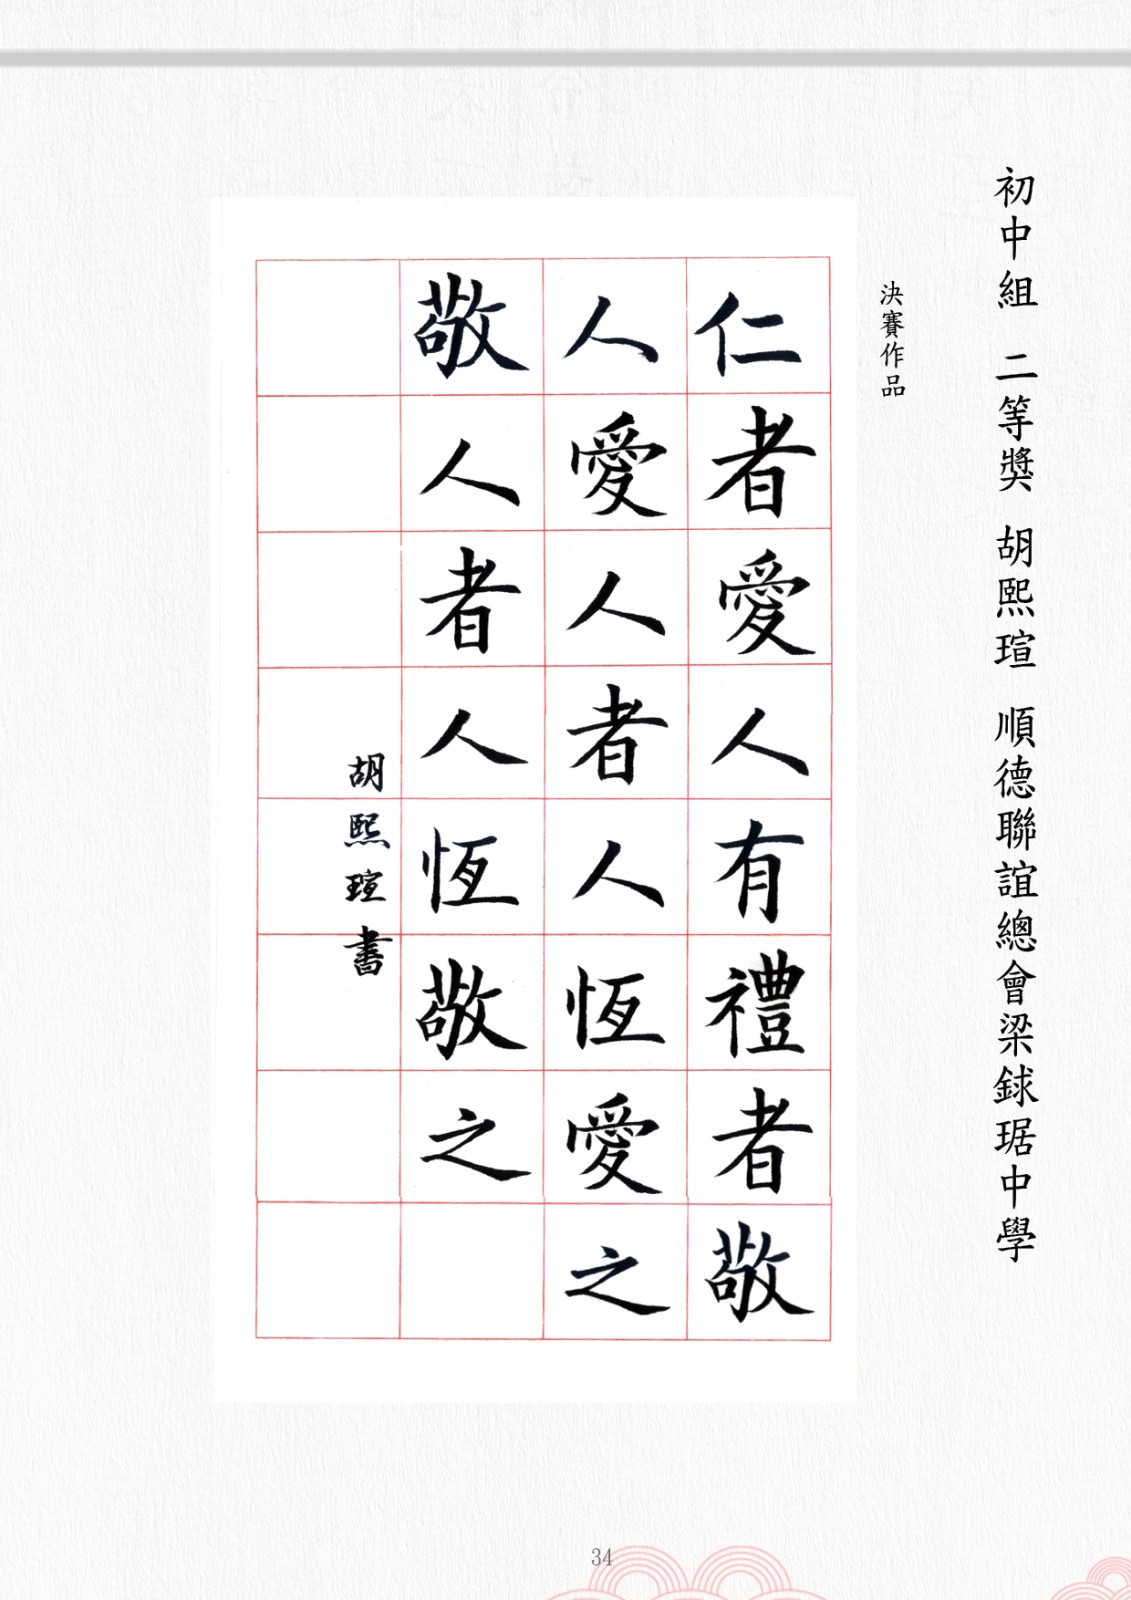 初中組 二等獎 胡熙瑄 順德聯誼總會梁銶琚中學
決賽作品
仁者愛人有禮者敬
人愛人者人恆愛之
敬人者人恆敬之
胡熙瑄書
34